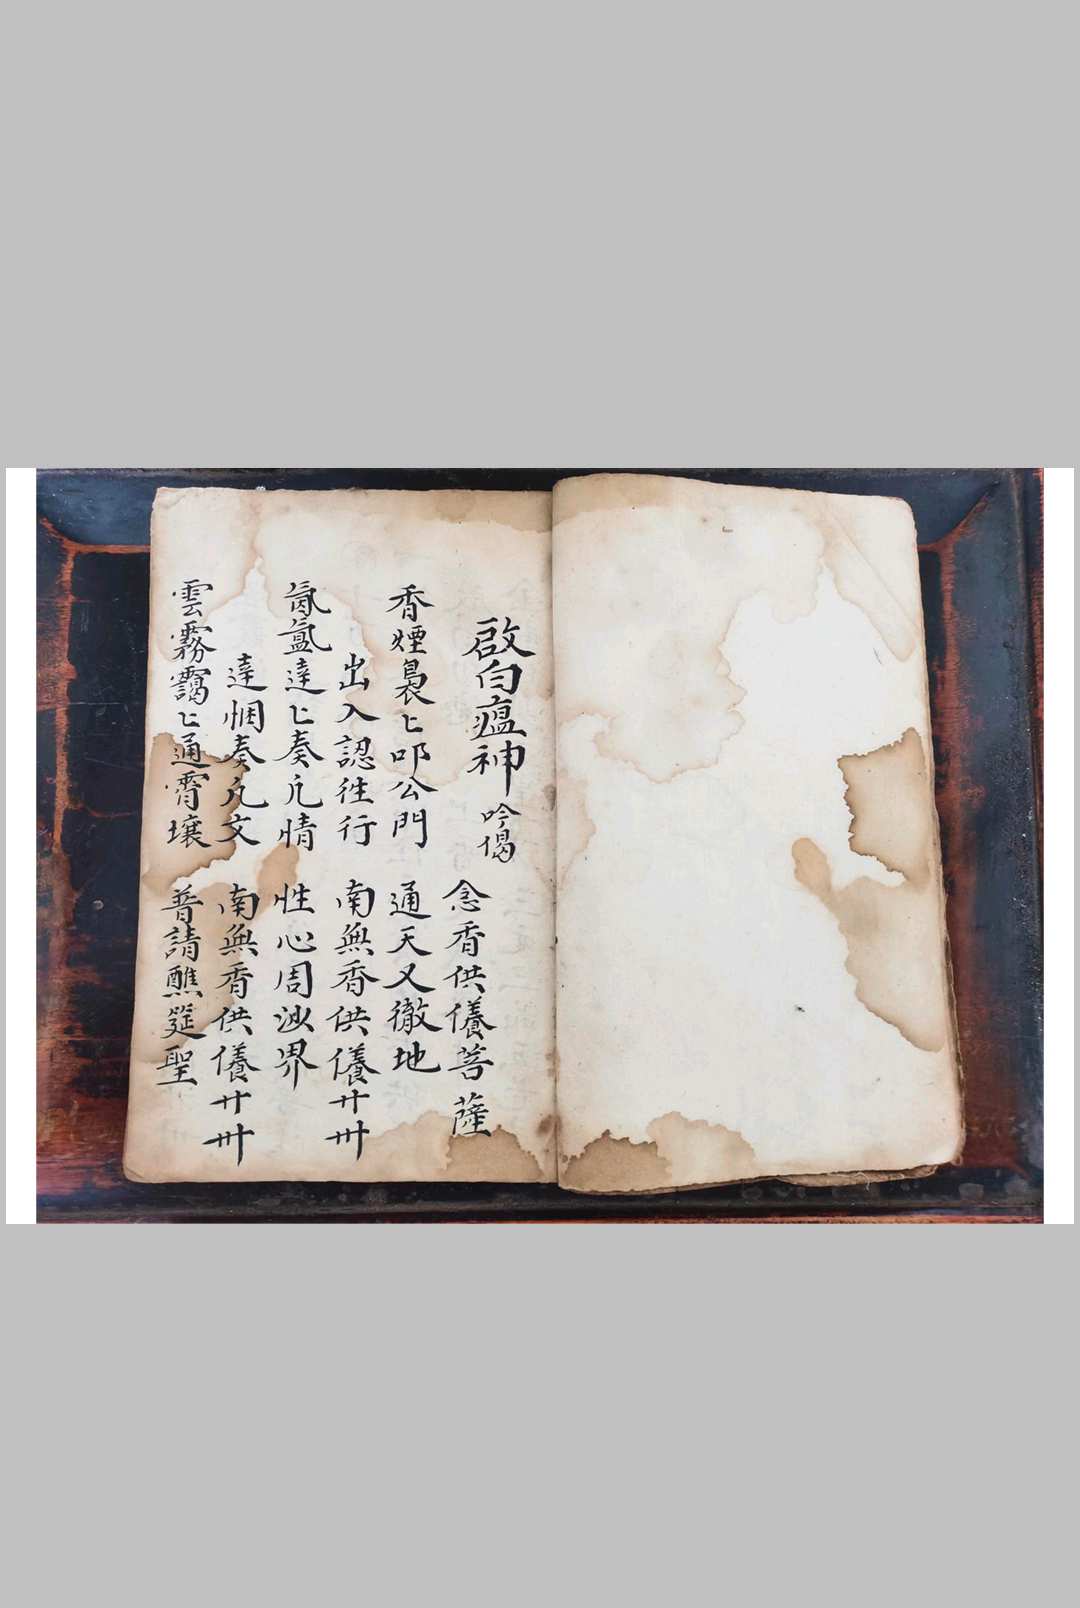 啟白瘟神 吟偈
念香供養菩薩
香煙裊匕叩公門 通天又徹地
出入認徃行 南無香供養廾卅
氤氳達匕奏凡情 性心周沙界
達悃奏凡文 南無香供養廾卅
雲霧靄匕通霄壤 普請醮筵聖